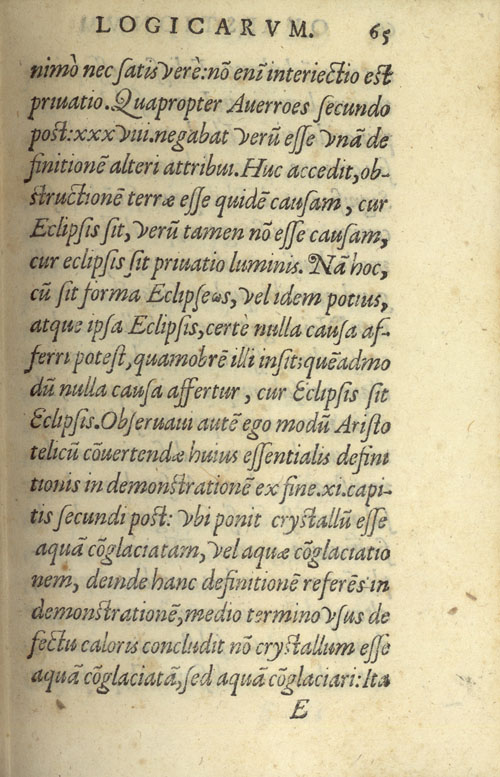 LOGICARVM. 65
nimò nec ſatis verè:nõ enĩ interiectio eſt
priuatio. Quapropter Auerroes ſecundo
poſt:xxxviii.negabat verũ eſſe vnã de
finitionẽ alteri attribui. Huc accedit, ob-
ſtructionẽ terræ eſſe quidẽ cauſam, cur
Eclipſis ſit, verũ tamen nõ eſſe cauſam,
cur eclipſis ſit priuatio luminis. Nã hoc,
cũ ſit forma Eclipſeωs, vel idem potius,
atque ipſa Eclipſis, certè nulla cauſa af-
ferri poteſt, quamobrẽ illi inſit: quẽadmo
dũ nulla cauſa affertur, cur Eclipſis ſit
Eclipſis. Obſeruaui autẽ ego modũ Ariſto
telicũ cõuertendæ huius eſſentialis defini
tionis in demonſtrationẽ ex fine.xi.capi-
tis ſecundi poſt: vbi ponit cryſtallũ eſſe
aquã cõglaciatam, vel aquæ cõglaciatio
nem, deinde hanc definitionẽ referẽs in
demonſtrationẽ, medio termino vſus de
fectu caloris concludit nõ cryſtallum eſſe
aquã cõglaciatã, ſed aquã cõglaciari: Ita
E